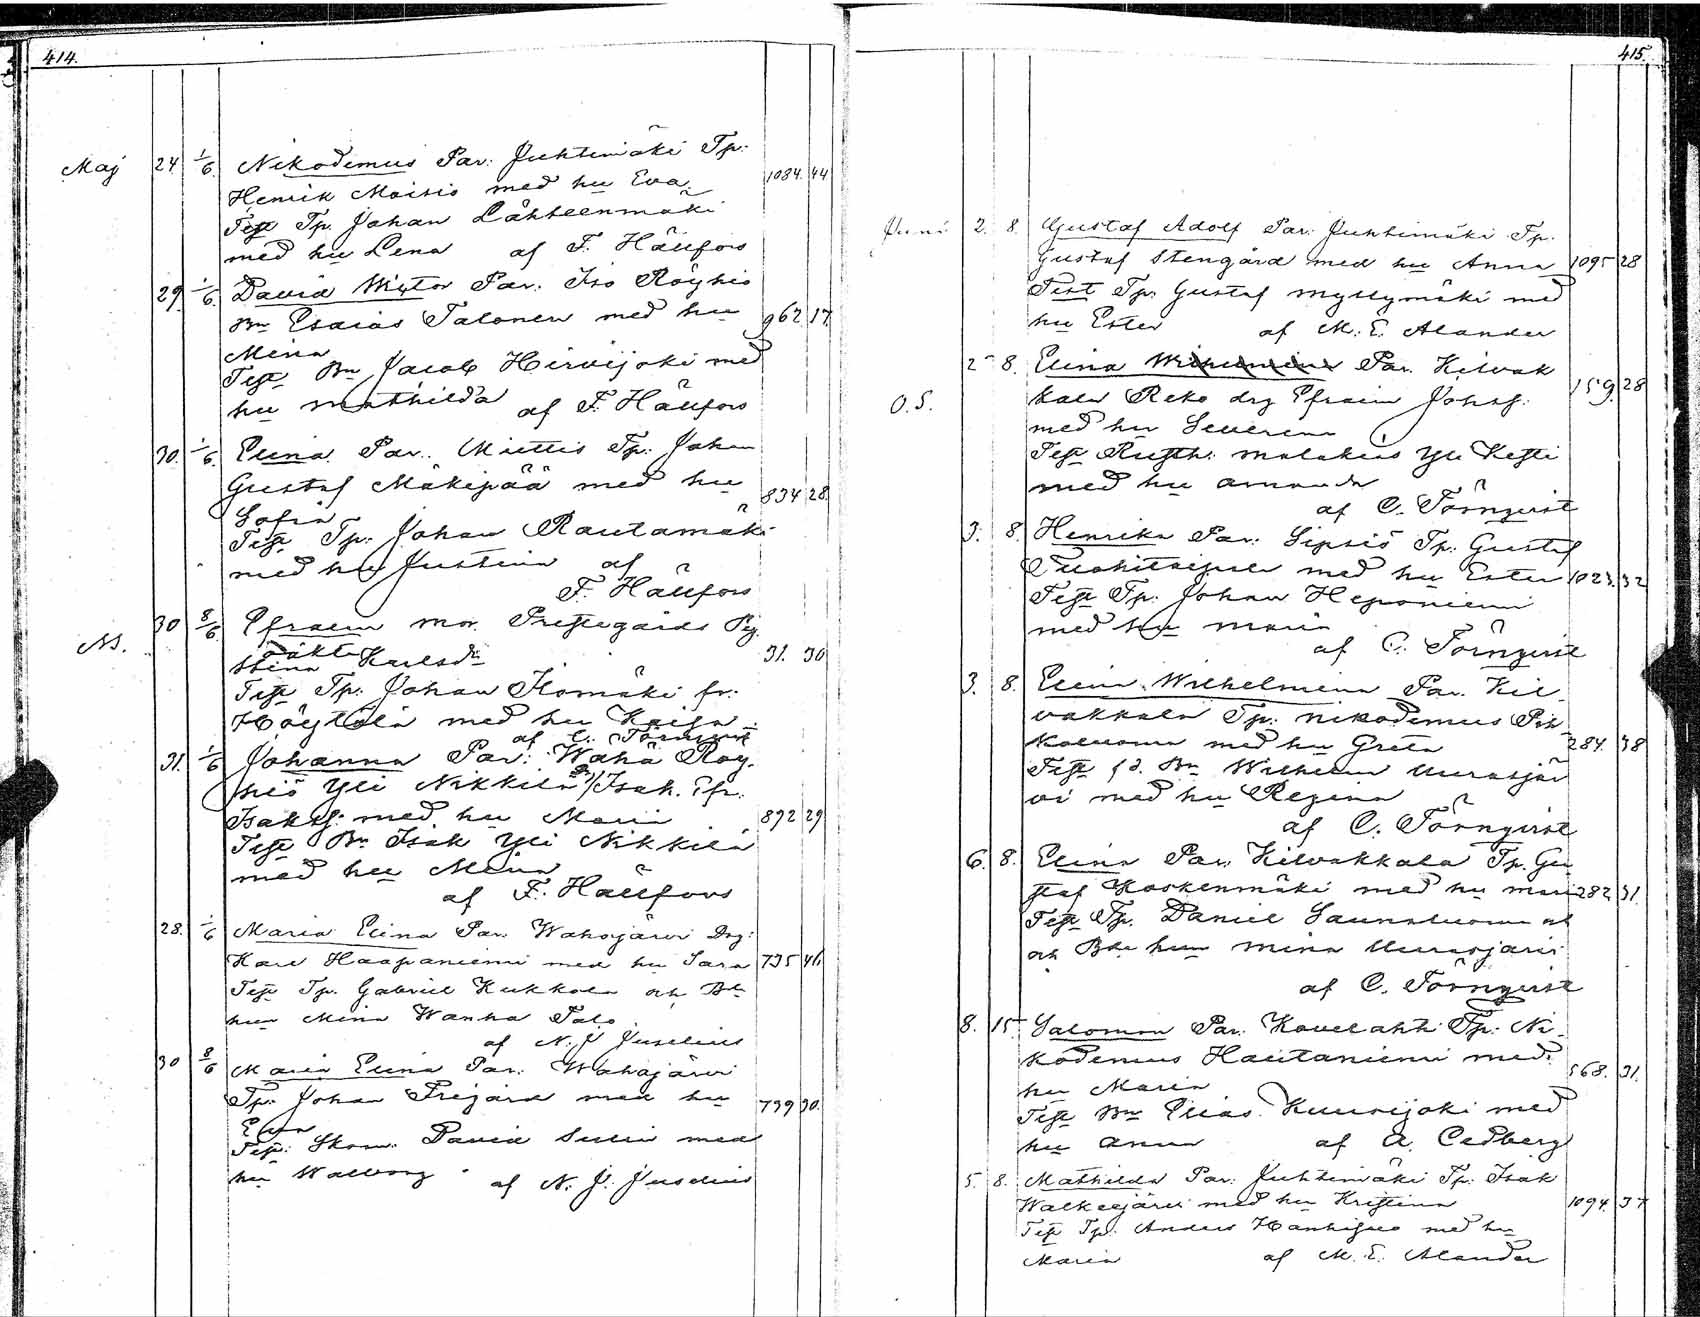 414.
Maj 24 1/6 Nikodemus Par: Juhtimäki Tp:
Henrik Moisio med hu Eva 1084. 44
Test Tp. Johan Lähteenmäki
med hu Lena af F. Hällfors
29. 1/6 David Wictor Par. Iso Röyhiö
Bn Esaias Talonen med hu 962 17.
Mina
Test Bn Jacob Hirvijoki med
hu Mathilda af F. Hällfors
30. 1/6 Elina Par. Miettis Tp: Johan
Gustaf Mäkipää med hu 834 28.
Sofia
Test Tp: Johan Rautamäki
med hu Justina af
F. Hällfors
N. 30 8/6 Efraim mor Prestegårds Pig.
oäkta
Stina Karlsdr 31. 30
Test Tp: Johan Ilomäki fr.
Höytölä med hu Kaisa
af C. Törnqvist
31. 1/6 Johanna Par: Wähä Röy-
hiö Yli Nikkilä Isak. Efr.
Isaksf: med hu Maria 892 29
Test Bn Isak Yli Nikkilä
med hu Mina
af F. Hällfors
28. 1/6 Maria Elina Par. Wahojärvi Drg:
Karl Haapaniemi med hu Sara 735 41.
Test Tp. Gabriel Kukkola och Bd
hu Mina Wanha Talo
af N. J. Juselius
30 8/6 Maria Elina Par. Wahojärvi
Tp: Johan Frigård med hu 739 30.
Eva
Test: Skom. David Selin med
hu Walborg af N. J. Juselius
415.
Juni 2. 8. Gustaf Adolf Par: Juhtimäki Tp.
Gustaf Stengård med hu Anna 1095 28
Test Tp. Gustaf Myllymäki med
hu Ester af M. E. Alander
O.S. 2 8. Elina Wilhelmina Par. Kilvak
kala Reko drg Efraim Johsf. 159. 28
med hu Severina
Test Rusth: Malakias Yli Kesti
med hu Amanda
af C. Törnqvist
3. 8. Henrika Par: Sipsiö Tp: Gustaf
med hu Ester 1023. 32
Test Tp: Johan Heponiemi
med hu Maria
af C. Törnqvist
3. 8. Elina Wilhelmina Par. Kil-
vakkala Tp: Nikodemus Pik
koluoma med hu Greta 284. 38
Test f.d. Bn Wilhelm Uurasjär
vi med hu Regina
af C. Törnqvist
6. 8. Elina Par: Kilvakkala Tp. Gu
staf Koskenmäki med hu Maria 282 31.
Test Tp. Daniel Saunaluoma
och Bde hun Mina Uurasjärvi
af C. Törnqvist
8. 15 Salomon Par: Kovelahti Tp: Ni-
kodemus Hautaniemi med 568. 31.
hu Maria
Test Bn Elias Kuusijoki med
hu Anna af A. Cedberg
5. 8. Mathilda Par: Juhtimäki Tp: Isak
Walkeejärvi med hu Kristina 1094. 37
Test Tp. Anders Hanhijuo med hu
Maria af M. E. Alander